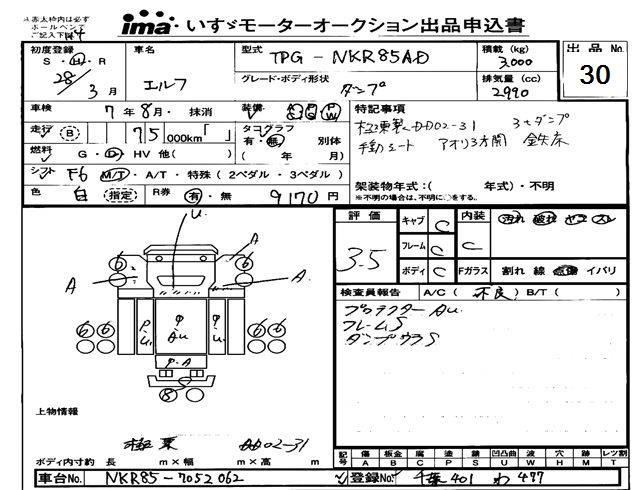 太枠内は必ず
ボールペンで
ご記入下さい
ima いすゞモーターオークション出品申込書
初度登録 車名 型式 TPG-NKR85AD 積載(kg) 3,000 出品No. 30
S・H・R 28年 3月 エルフ グレード・ボディ形状 ダンプ 排気量(cc) 2990
車検 7年 8月・抹消 装備 A/C P/S P/W 特記事項
走行 75,000km「 」 タコグラフ 有・無 別体 極東製 DD02-31 3tダンプ
燃料 G・D・HV 他( ) ( 年 月) 手動シート アオリ3方開 鉄床
シフト F6 M/T・A/T・特殊(2ペダル・3ペダル)
色 白 (指定) R券 有・無 9,170円 架装物年式:( 年式)・不明
※不明の場合は、不明に○をする。
評価 3.5 キャブ C 内装 C 汚れ 破れ ヤコ スレ
フレーム C
ボディ C Fガラス 割れ 線 点傷 イバリ
検査員報告 A/C(不良) B/T( )
プロテクター AU
フレームS
ダンプウラS
U
A A
A
P U P AU P U
P・A
B
上物情報
極東 DD02-31
ボディ内寸約 長 m×幅 m×高 m
記号 傷 板金 腐 塗 錆 凹凸曲 波 穴 跡 レツ割
A B C P S U W H M T
車台No. NKR85-7052062 登録No. 千葉 401 わ 477